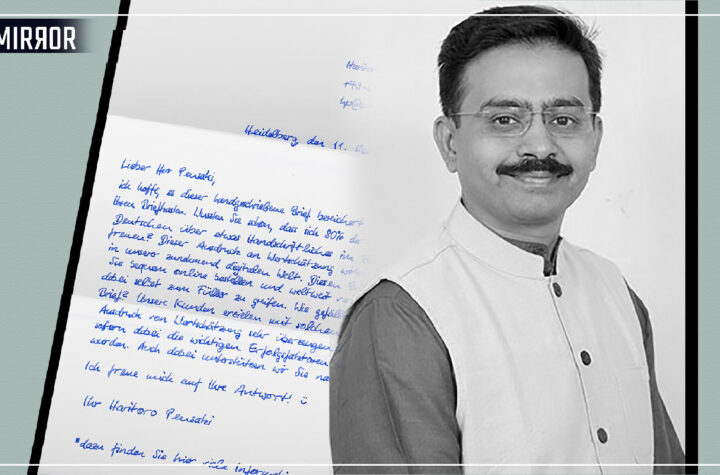 MIRROR
Heidelberg, den 11.
Lieber Herr Pensaki,
ich hoffe, dieser handgeschriebene Brief bereichert
Ihren Briefkasten. Wussten Sie schon, dass sich 80% der
Deutschen über etwas Handschriftliches im
freuen? Dieser Ausdruck an Wertschätzung
in unserer zunehmend digitalen Welt. Diesen
Sie bequem online bestellen und weltweit
dabei selbst zum Füller zu greifen. Wie gefällt
Brief? Unsere Kunden erzielen mit solchen
Ausdruck von Wertschätzung sehr überzeugen
sofern dabei die wichtigen Erfolgsfaktoren
werden. Auch dabei unterstützen wir Sie
Ich freue mich auf Ihre Antwort! ü
Ihr Haritoro Pensaki
*dazu finden Sie hier viele